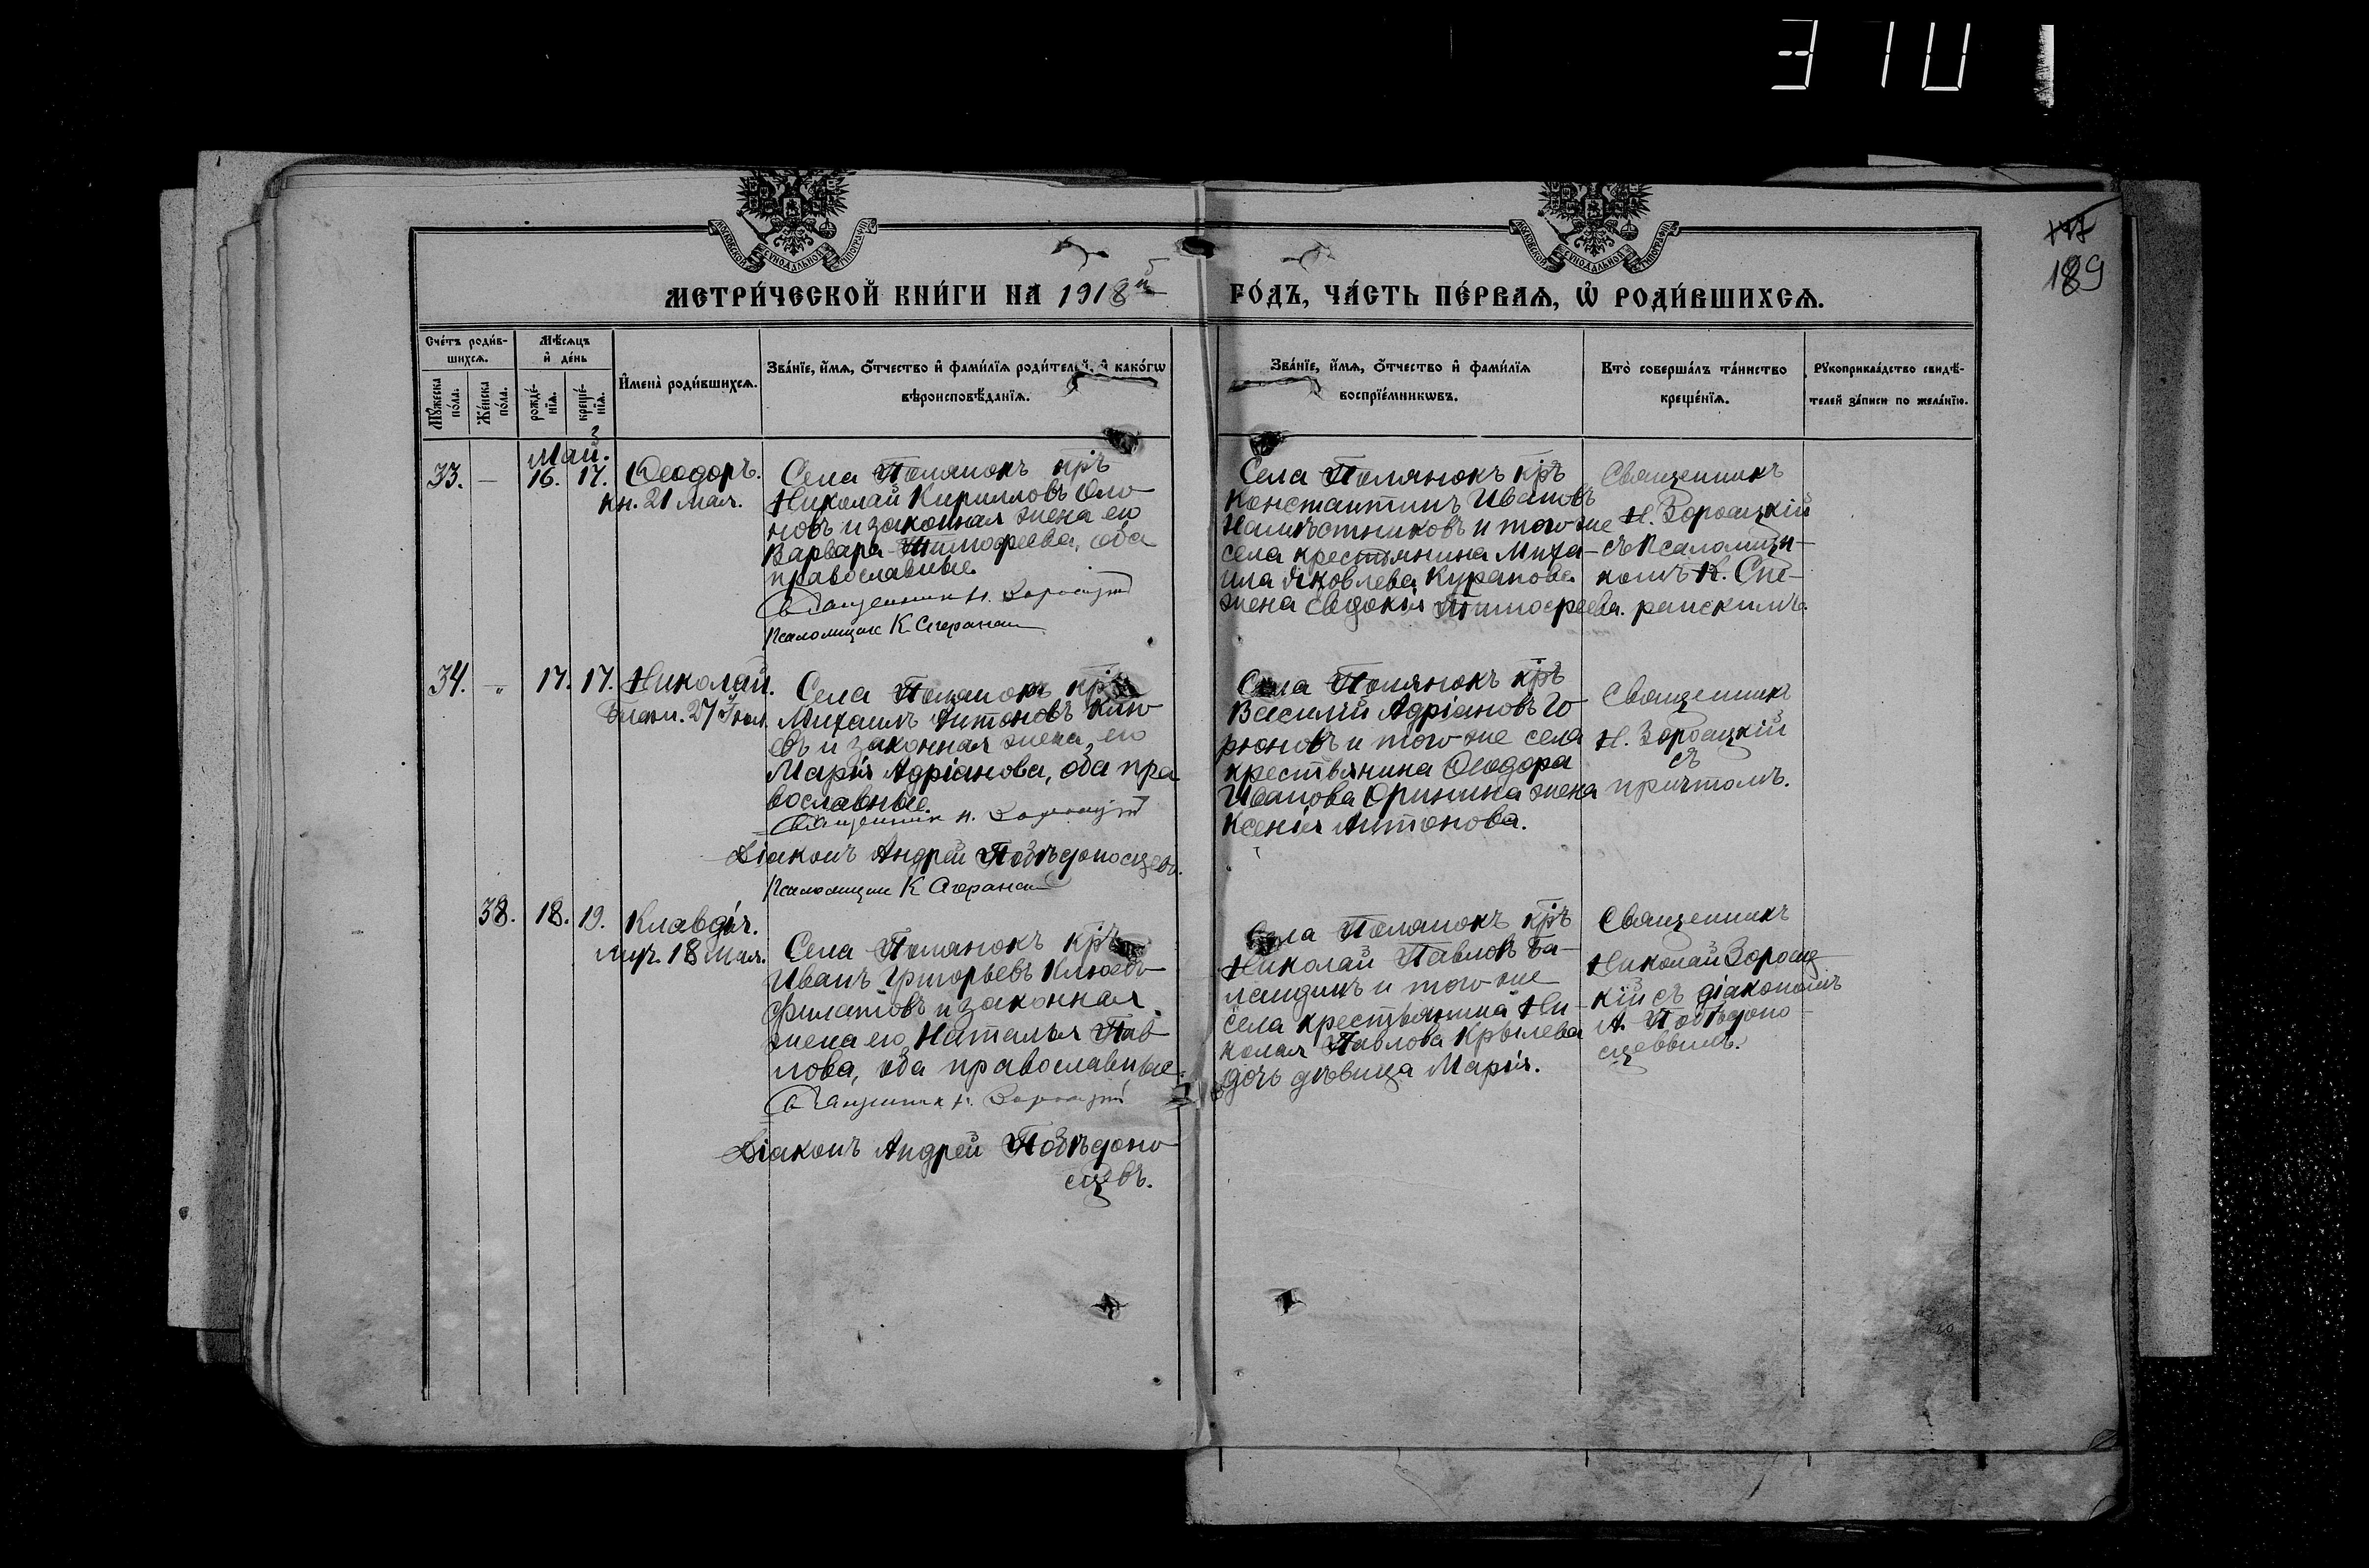 3 7 0
147
189
МОСКОВСКОЙ СѴНОДАЛЬНОЙ ТИПОГРАФІИ
МОСКОВСКОЙ СѴНОДАЛЬНОЙ ТИПОГРАФІИ
МЕТРИ́ЧЕСКОЙ КНИ́ГИ НА 1918й
ГО́ДЪ, ЧА́СТЬ ПЕ́РВАѦ, Ѡ҆ РОДИ́ВШИХСѦ.
Сче́тъ роди́в-
шихсѧ.
Мꙋ́жеска
по́ла.
Же́нска
по́ла.
Мѣ́сѧцъ
и҆ де́нь
рожде́-
нїѧ.
креще́-
нїѧ.
И҆мена̀ роди́вшихсѧ.
Зва́нїе, и҆́мѧ, ѻ҆́тчество и҆ фами́лїѧ роди́телей, и҆ како́гѡ
вѣроисповѣ́данїѧ.
Зва́нїе, и҆́мѧ, ѻ҆́тчество и҆ фами́лїѧ
воспрїе́мникѡвъ.
Кто̀ соверша́лъ та́инство
креще́нїѧ.
Рꙋкоприкла́дство свидѣ́-
телей за́писи по жела́нїю.
Май.
33. — 16. 17. Ѳеодоръ.
кн. 21 мая.
Села Полянокъ кр҃ъ
Николай Кирилловъ Оло-
новъ и законная жена его
Варвара Тимофеева, оба
православные.
Священникъ Н.
Псаломщик К
Села Полянокъ кр҃ъ
Константинъ Ивановъ
Намѣстниковъ и того же
села крестьянина Миха-
ила Яковлева Куранова
жена Евдокія Тимофеева.
Священникъ
Н. Зороацкій
съ псаломщи-
комъ К. Спе-
ранскимъ.
34. — 17. 17. Николай.
Села Полянокъ кр҃ъ
Михаилъ Антоновъ Клю-
евъ и законная жена его
Марія Адріанова, оба пра
вославные.
Священник Н.
Діаконъ Андрей Побѣдоносцевъ.
Псаломщик К
Села Полянокъ кр҃ъ
Василій Адріановъ Го
рюновъ и того же села
крестьянина Ѳеодора
Иванова Оринина жена
Ксенія Антонова.
Священникъ
Н. Зороацкій
съ
причтомъ.
38. 18. 19. Клавдія.
18 мая.
Села Полянокъ кр҃ъ
Иванъ Григорьевъ Клюевъ
Филатовъ и законная
жена его Наталья Пав
лова, оба православные.
Священник Н.
Діаконъ Андрей Побѣдоно
сцевъ.
Села Полянокъ кр҃ъ
Николай Павловъ Ба-
ландинъ и того же
села крестьянина Ни-
колая Павлова Крылева
дочь дѣвица Марія.
Священникъ
Николай Зороац
кій съ діакономъ
А. Побѣдоно-
сцевымъ.